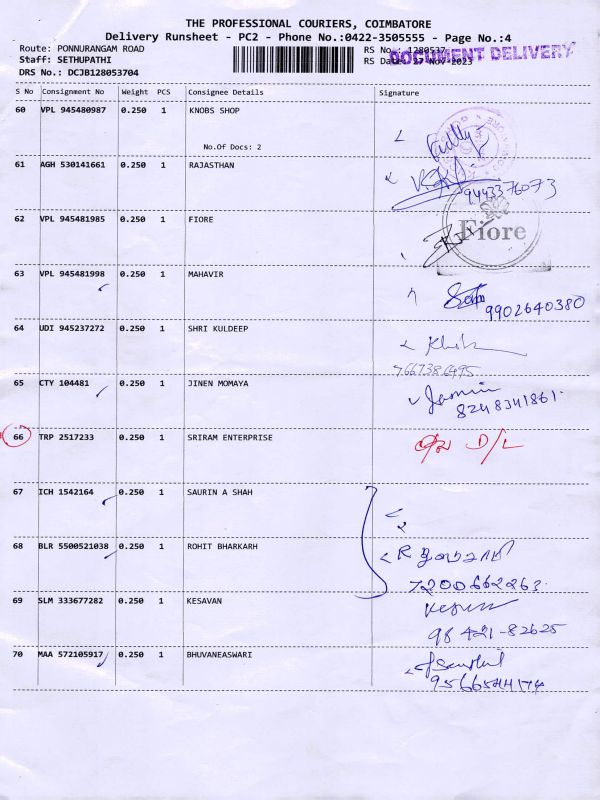 THE PROFESSIONAL COURIERS, COIMBATORE
Delivery Runsheet - PC2 - Phone No.:0422-3505555 - Page No.:4
Route: PONNURANGAM ROAD
RS No.: 1280537
DOCUMENT DELIVERY
Staff: SETHUPATHI
RS Date: 17-Nov-2023
DRS No.: DCJB128053704
S No Consignment No Weight PCS Consignee Details Signature
60 VPL 945480987 0.250 1 KNOBS SHOP
No.Of Docs: 2
61 AGH 530141661 0.250 1 RAJASTHAN
9443376073
62 VPL 945481985 0.250 1 FIORE
Fiore
63 VPL 945481998 0.250 1 MAHAVIR
9902640380
64 UDI 945237272 0.250 1 SHRI KULDEEP
7667386495
65 CTY 104481 0.250 1 JINEN MOMAYA
Jasmin
8248341861.
66 TRP 2517233 0.250 1 SRIRAM ENTERPRISE
D/L
67 ICH 1542164 0.250 1 SAURIN A SHAH
68 BLR 5500521038 0.250 1 ROHIT BHARKARH
7200662263.
69 SLM 333677282 0.250 1 KESAVAN
98421-82625
70 MAA 572105917 0.250 1 BHUVANEASWARI